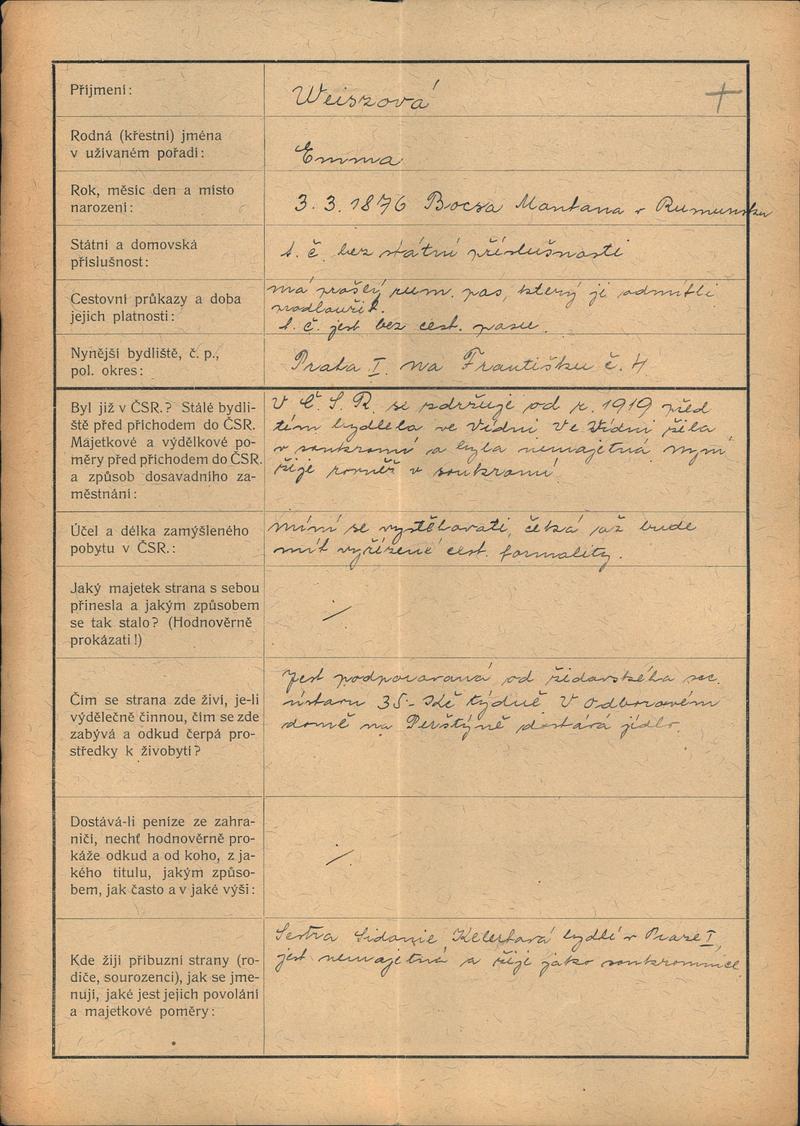 Příjmení:
Weiszová
Rodná (křestní) jména
v užívaném pořadí:
Emma
Rok, měsíc den a místo
narození:
3. 3. 1876 Bocsa Montana v Rumunsku
Státní a domovská
příslušnost:
t. č. bez státní příslušnosti
Cestovní průkazy a doba
jejich platnosti:
má prošlý rum. pas, který jí odmítli
prodloužit.
t. č. jest bez cest. pasu.
Nynější bydliště, č. p.,
pol. okres:
Praha I. na Františku č. 4
Byl již v ČSR.? Stálé bydli-
ště před příchodem do ČSR.
Májetkové a výdělkové po-
měry před příchodem do ČSR.
a způsob dosavadního za-
městnání:
V Č. S. R. se zdržuje od r. 1919 před
tím bydlela ve Vídni Ve Vídni žila
v soukromí a byla nemajetná nyní
žije rovněž v soukromí
Účel a délka zamýšleného
pobytu v ČSR.:
míní se vystěhovati, čeká až bude
mít vyřízené cest. formality.
Jaký majetek strana s sebou
přinesla a jakým způsobem
se tak stalo? (Hodnověrně
prokázati!)
Čím se strana zde živí, je-li
výdělečně činnou, čím se zde
zabývá a odkud čerpá pro-
středky k živobytí?
Jest podporovaná od židovského soc.
ústavu 35.- Kč týdně. V Odborovém
domě na Perštýně dostává jídlo.
Dostává-li peníze ze zahra-
ničí, nechť hodnověrně pro-
káže odkud a od koho, z ja-
kého titulu, jakým způso-
bem, jak často a v jaké výši:
Kde žijí příbuzní strany (ro-
diče, sourozenci), jak se jme-
nují, jaké jest jejich povolání
a majetkové poměry:
Sestra Sidonie bydlí v Praze I,
jest nemajetná a žije jako